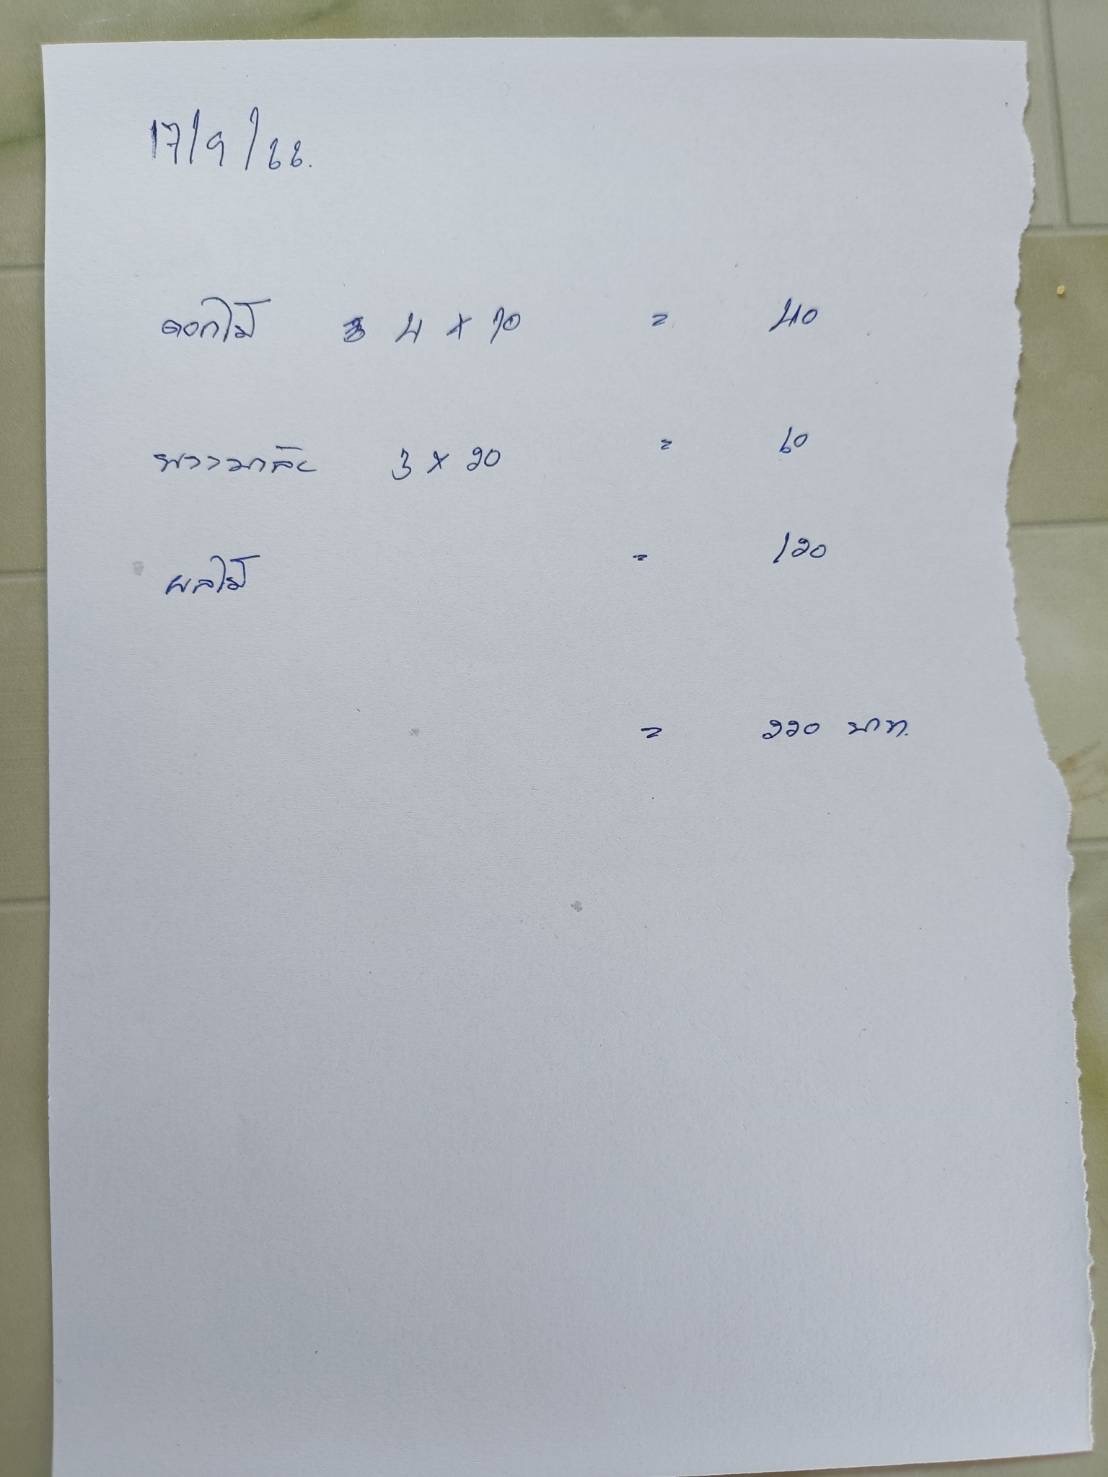 17/9/66.
ดอกไม้ 4 x 10 = 40
พวงมาลัย 3 x 20 = 60
ผลไม้ = 120
= 220 บาท.